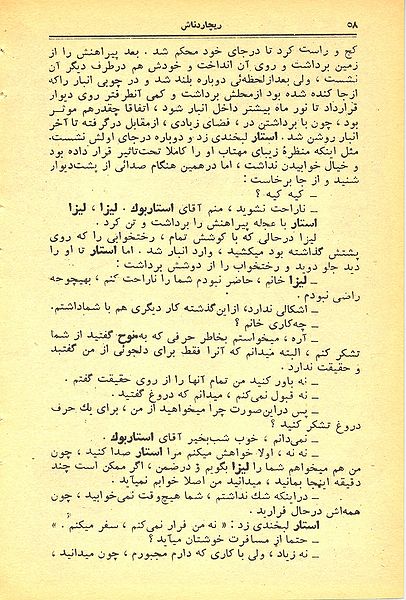 ۵۸ ریچاردناش
کج و راست کرد تا درجای خود محکم شد . بعد پیراهنش را از
زمین برداشت و روی آن انداخت و خودش هم درطرف دیگر آن
نشست ، ولی بعدازلحظه‌ئی دوباره بلند شد و در چوبی انبار راکه
ازجا کنده شده بود ازمحلش برداشت و کمی آنطرفتر روی دیوار
قرارداد تا نور ماه بیشتر داخل انبار شود ، اتفاقا چقدرهم موثر
بود ، چون با برداشتن در ، فضای زیادی ، ازمقابل درگرفته تا آخر
انبار روشن شد. استار لبخندی زد و دوباره درجای اولش نشست.
مثل اینکه منظرهٔ زیبای مهتاب او را کاملا تحت‌تاثیر قرار داده بود
و خیال خوابیدن نداشت ، اما درهمین هنگام صدائی از پشت‌دیوار
شنید و از جا برخاست :
ــ کیه کیه ؟
ــ ناراحت نشوید ، منم آقای استاربوك . لیزا ، لیزا
استار با عجله پیراهنش را برداشت و تن کرد .
لیزا درحالی که با کوشش تمام ، رختخوابی را که روی
پشتش گذاشته بود میکشید ، وارد انبار شد . اما استار تا او را
دید جلو دوید و رختخواب را از دوشش برداشت :
ــ لیزا خانم ، حاضر نبودم شما را ناراحت کنم ، بهیچوجه
راضی نبودم .
ــ اشکالی ندارد، ازاین‌گذشته کار دیگری هم با شماداشتم.
ــ چه‌کاری خانم ؟
ــ آره ، میخواستم بخاطر حرفی که به‌نوح گفتید از شما
تشکر کنم ، البته میدانم که آنرا فقط برای دلجوئی از من گفتید
و حقیقت ندارد .
ــ نه باور کنید من تمام آنها را از روی حقیقت گفتم .
ــ نه قبول نمی‌کنم ، میدانم که دروغ گفتید .
ــ پس دراین‌صورت چرا میخواهید از من ، برای یك حرف
دروغ تشکر کنید ؟
ــ نمی‌دانم ، خوب شب‌بخیر آقای استاربوك .
ــ نه نه ، اولا خواهش میکنم مرا استار صدا کنید ، چون
من هم میخواهم شما را لیزا بگویم و درضمن ، اگر ممکن است چند
دقیقه اینجا بمانید ، میدانید من اصلا خوابم نمیآید .
ــ دراینکه شك نداشتم ، شما هیچ‌وقت نمی‌خوابید ، چون
همه‌اش درحال فرارید .
استار لبخندی زد : « نه من فرار نمی‌کنم ، سفر میکنم . »
ــ حتما از مسافرت خوشتان میآید ؟
ــ نه زیاد ، ولی با کاری که دارم مجبورم ، چون میدانید ،